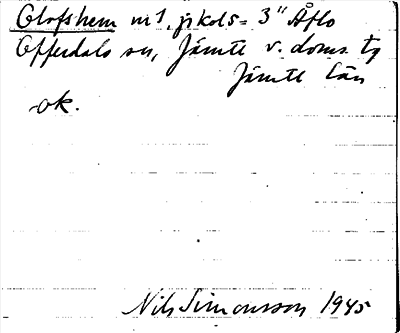 Olofshem nr 1. jrkds = 3" Åflo
Offerdals sn, Jämtl v. doms. tg
Jämtl län
ok.
Nils Simonsson 1945